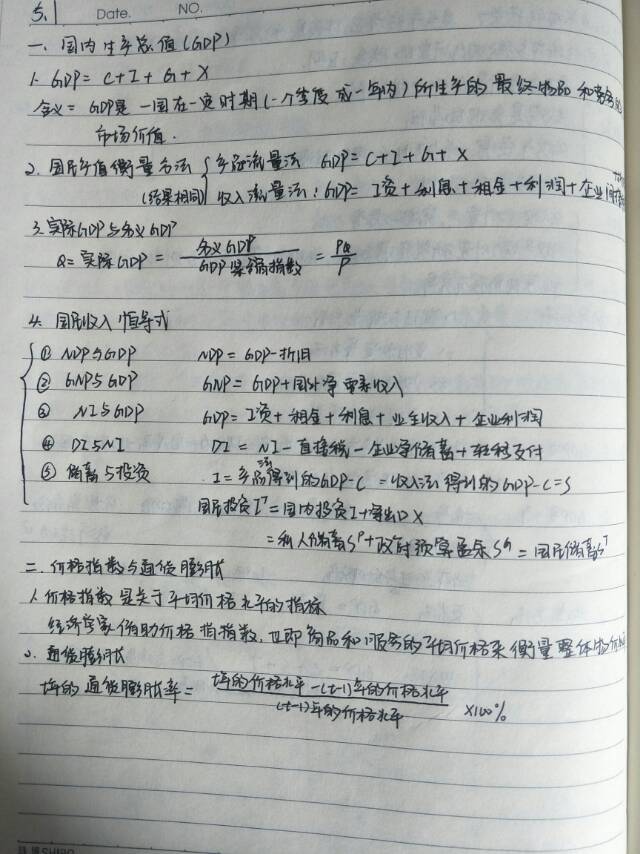 5.1 Date. NO.
一、国内生产总值(GDP)
1. GDP = C+I+G+X
含义 = GDP是一国在一定时期(一个季度或一年内)所生产的最终物品和劳务的
市场价值.
2. 国民产值衡量方法 产品流量法 GDP = C+I+G+X
(结果相同) 收入流量法: GDP = 工资+利息+租金+利润+企业间接
3. 实际GDP与名义GDP
Q = 实际GDP = 名义GDP / GDP紧缩指数 = PQ / P
4. 国民收入恒等式
① NDP与GDP NDP = GDP-折旧
② GNP与GDP GNP = GDP+国外净要素收入
③ NI与GDP GDP = 工资+租金+利息+业主收入+企业利润
④ DI与NI DI = NI-直接税-企业净储蓄+转移支付
⑤ 储蓄与投资 I = 产品法得到的GDP-C = 收入法得到的GDP-C=S
国民投资Iᵀ = 国内投资I+净出口X
= 私人储蓄Sᴾ+政府预算盈余Sᴳ = 国民储蓄Sᵀ
二、价格指数与通货膨胀
1. 价格指数是关于平均价格水平的指标
经济学家借助价格指指数,也即商品和服务的平均价格来衡量整体物价
2. 通货膨胀
t年的通货膨胀率 = t年的价格水平-(t-1)年的价格水平 / (t-1)年的价格水平 ×100%